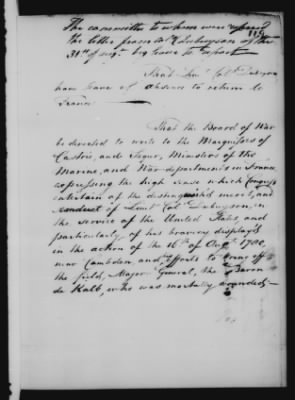 The committee to whom were refered
119
the letter from Mr Dubuyson of the
31st of augt. beg leave to report
That Lieut. Colo. Dubuyson
have leave of absence to return to
France
That the Board of War
be directed to write to the Marquisses of
Castries, and Segur, Ministers of the
Marine, and War departments in France
expressing the high sense which Congress
entertain of the distinguished merit, and
conduct of Lieut. Colo. Dubuyson, in
the service of the United States, and
particularly of his bravery displayed
in the action of the 16th of Augt. 1780,
near Cambden and efforts to bring off
the field, Major General, the Baron
de Kalb, when he was mortally wounded—